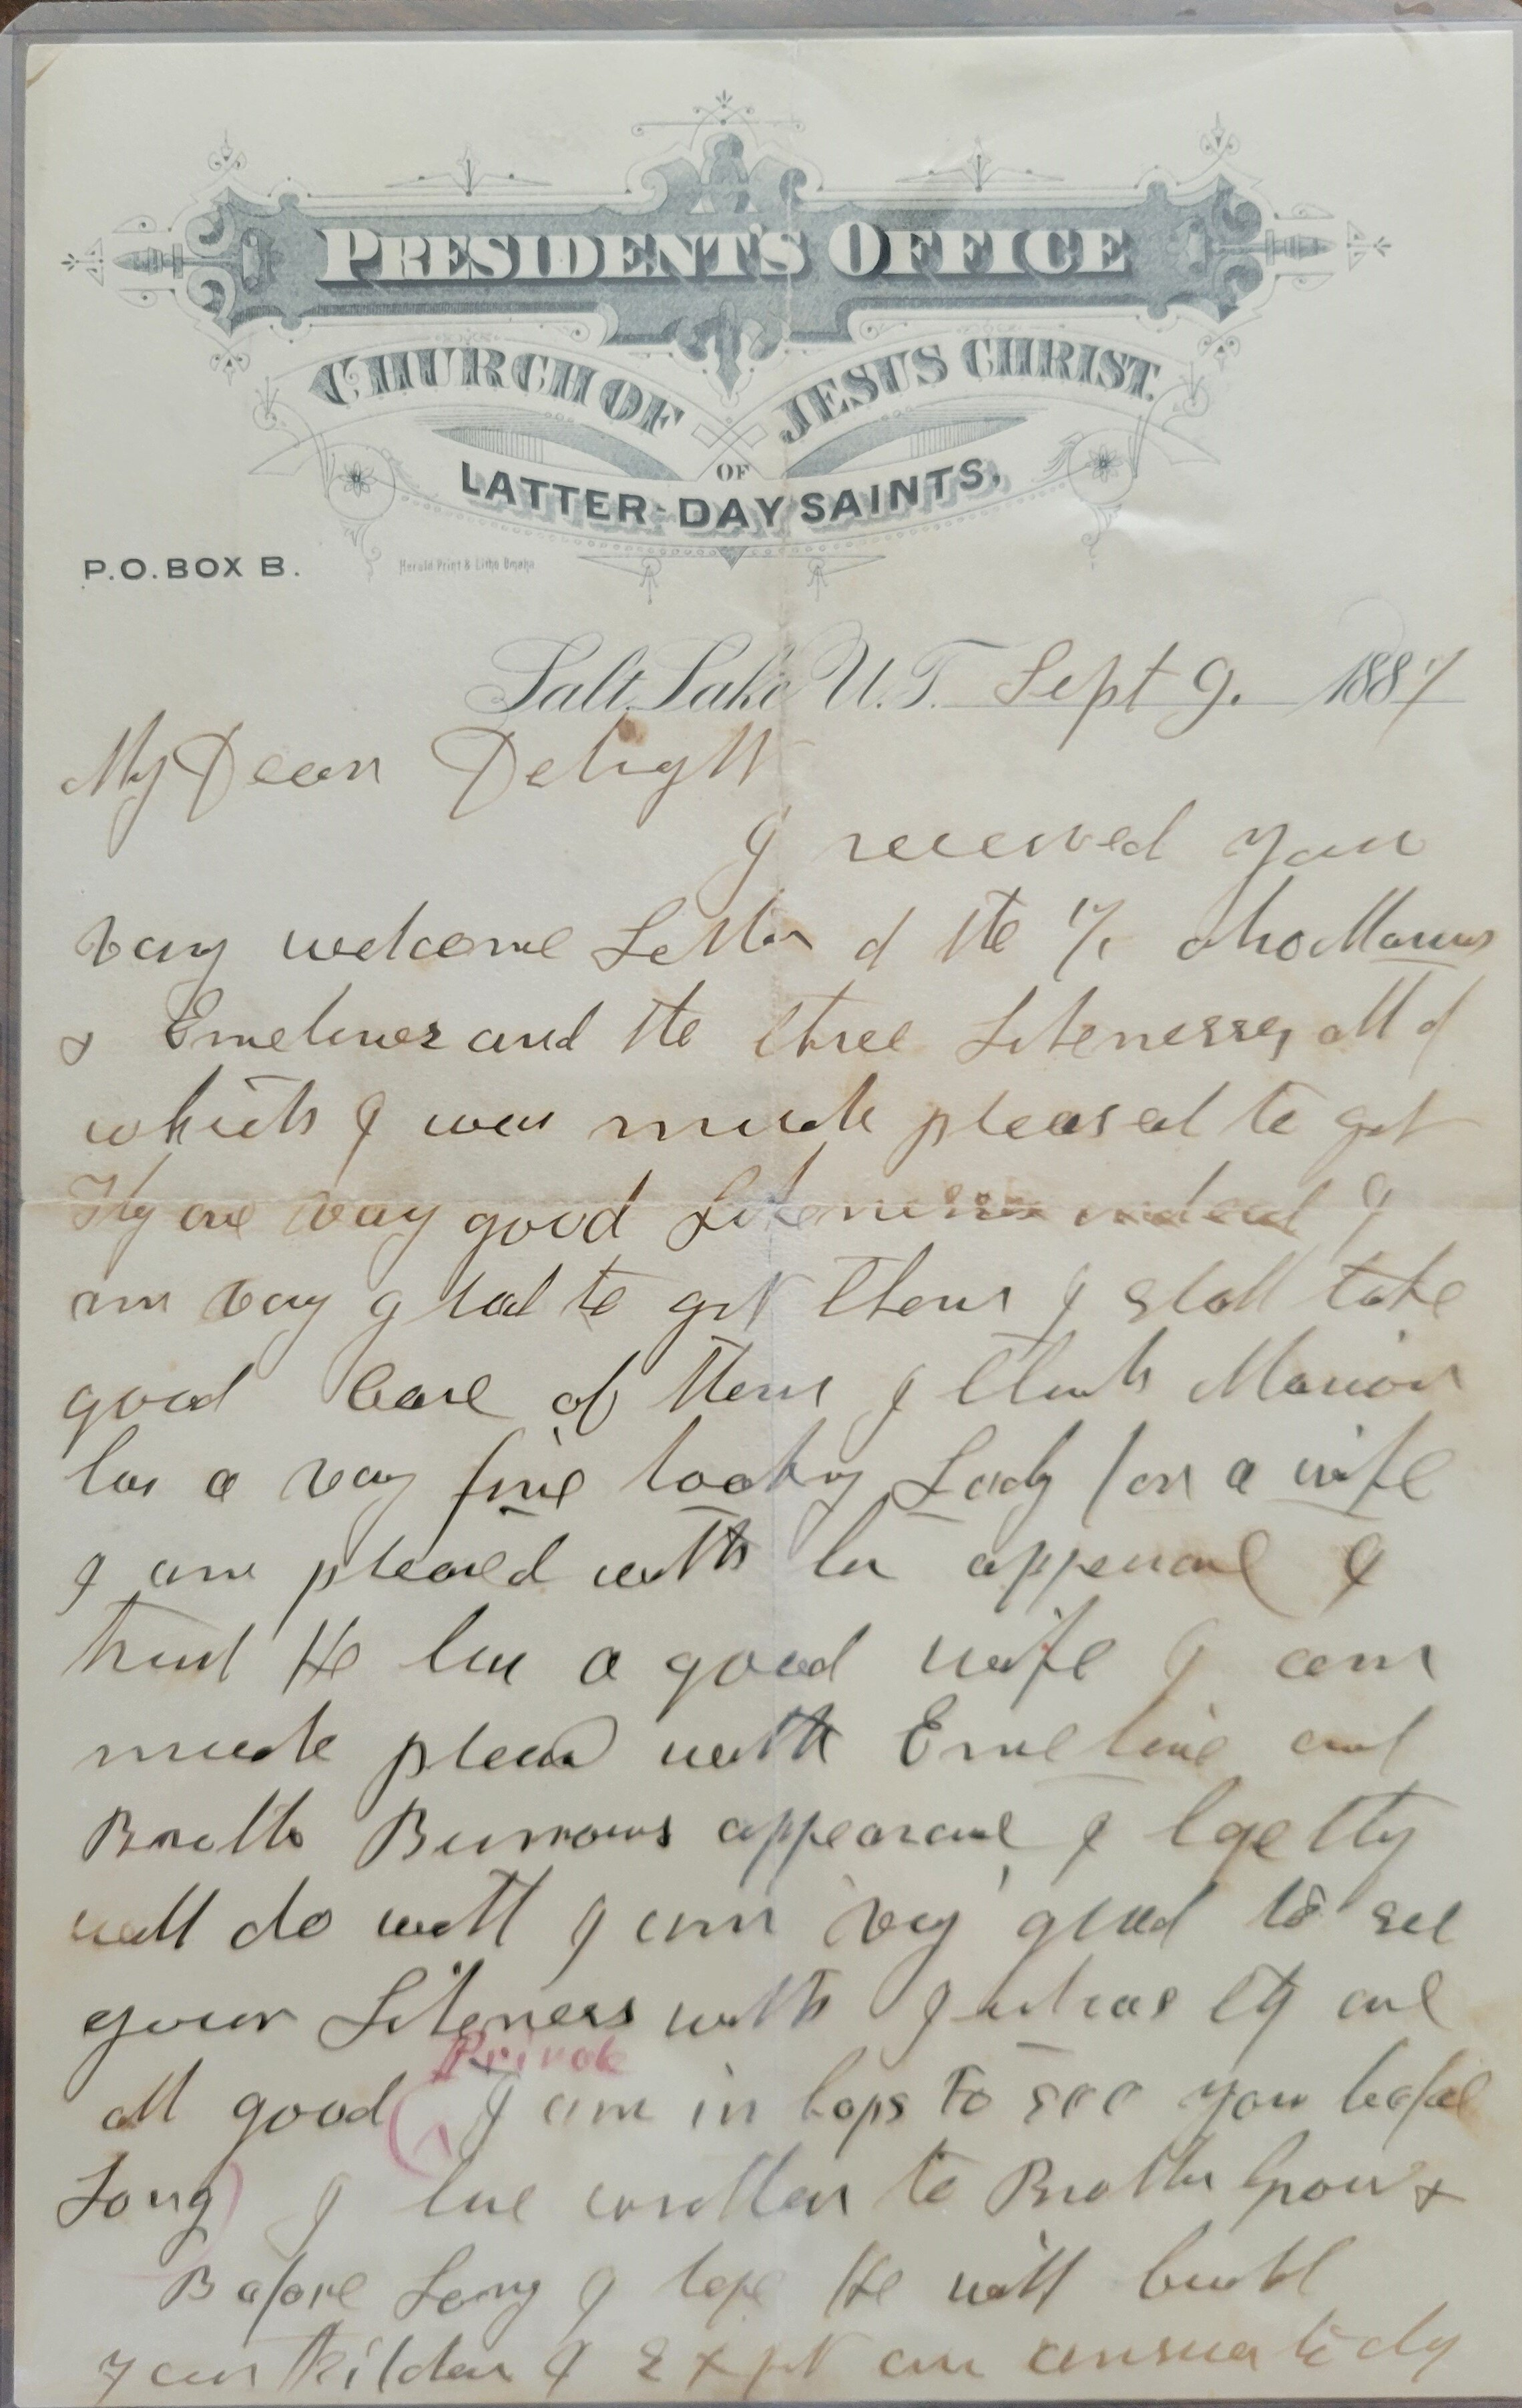 PRESIDENT'S OFFICE
CHURCH OF JESUS CHRIST.
OF
LATTER-DAY SAINTS,
P.O. BOX B.
Herald Print & Litho Omaha
Salt Lake U.T. Sept 9. 1887
My Dear Delight
I received your
very welcome Letter of the 7. also Marions
& Emelines and the three Likenesses, All of
which I was much pleased to get
They are very good Likenesses indeed I
am very glad to get them I shall take
good care of them I think Marion
has a very fine looking Lady for a wife
I am pleased with her appearance I
trust He has a good wife I am
much pleased with Emeline and
Brother Burrows appearance I hope they
will do well I am very glad to see
your Likeness with they are
Private
all good I am in hops to see you before
Long I have written to Brother Spour &
Before Long I hope He will build
your kitchen I Expet an answer to day